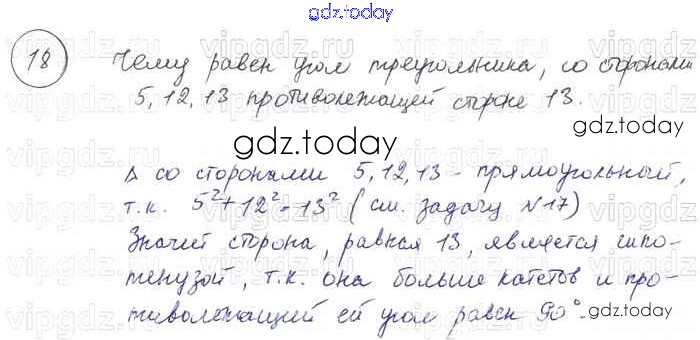 gdz.today
18 Чему равен угол треугольника, со сторонами
5, 12, 13 противолежащей стороне 13.
gdz.today
gdz.today
Δ со сторонами 5, 12, 13 - прямоугольный,
т.к. 5²+12²-13² (см. задачу №17)
Значит сторона, равная 13, является гипо-
тенузой, т.к. она больше катетов и про-
тиволежащий ей угол равен 90°.
gdz.today